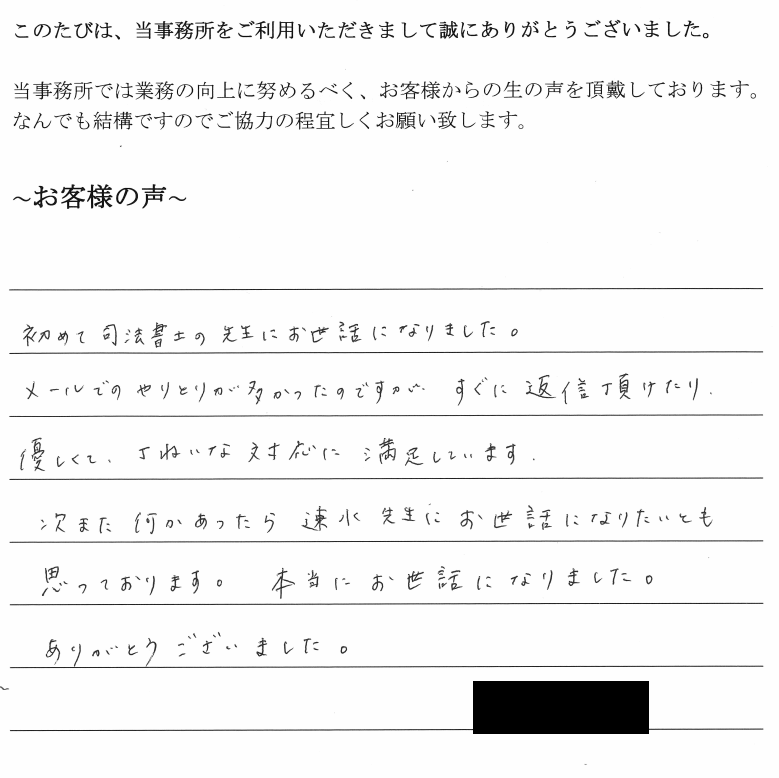 このたびは、当事務所をご利用いただきまして誠にありがとうございました。
当事務所では業務の向上に努めるべく、お客様からの生の声を頂戴しております。
なんでも結構ですのでご協力の程宜しくお願い致します。
～お客様の声～
初めて司法書士の先生にお世話になりました。
メールでのやりとりが多かったのですが、すぐに返信頂けたり、
優しくて、丁ねいな対応に満足しています。
次また何かあったら速水先生にお世話になりたいとも
思っております。 本当にお世話になりました。
ありがとうございました。